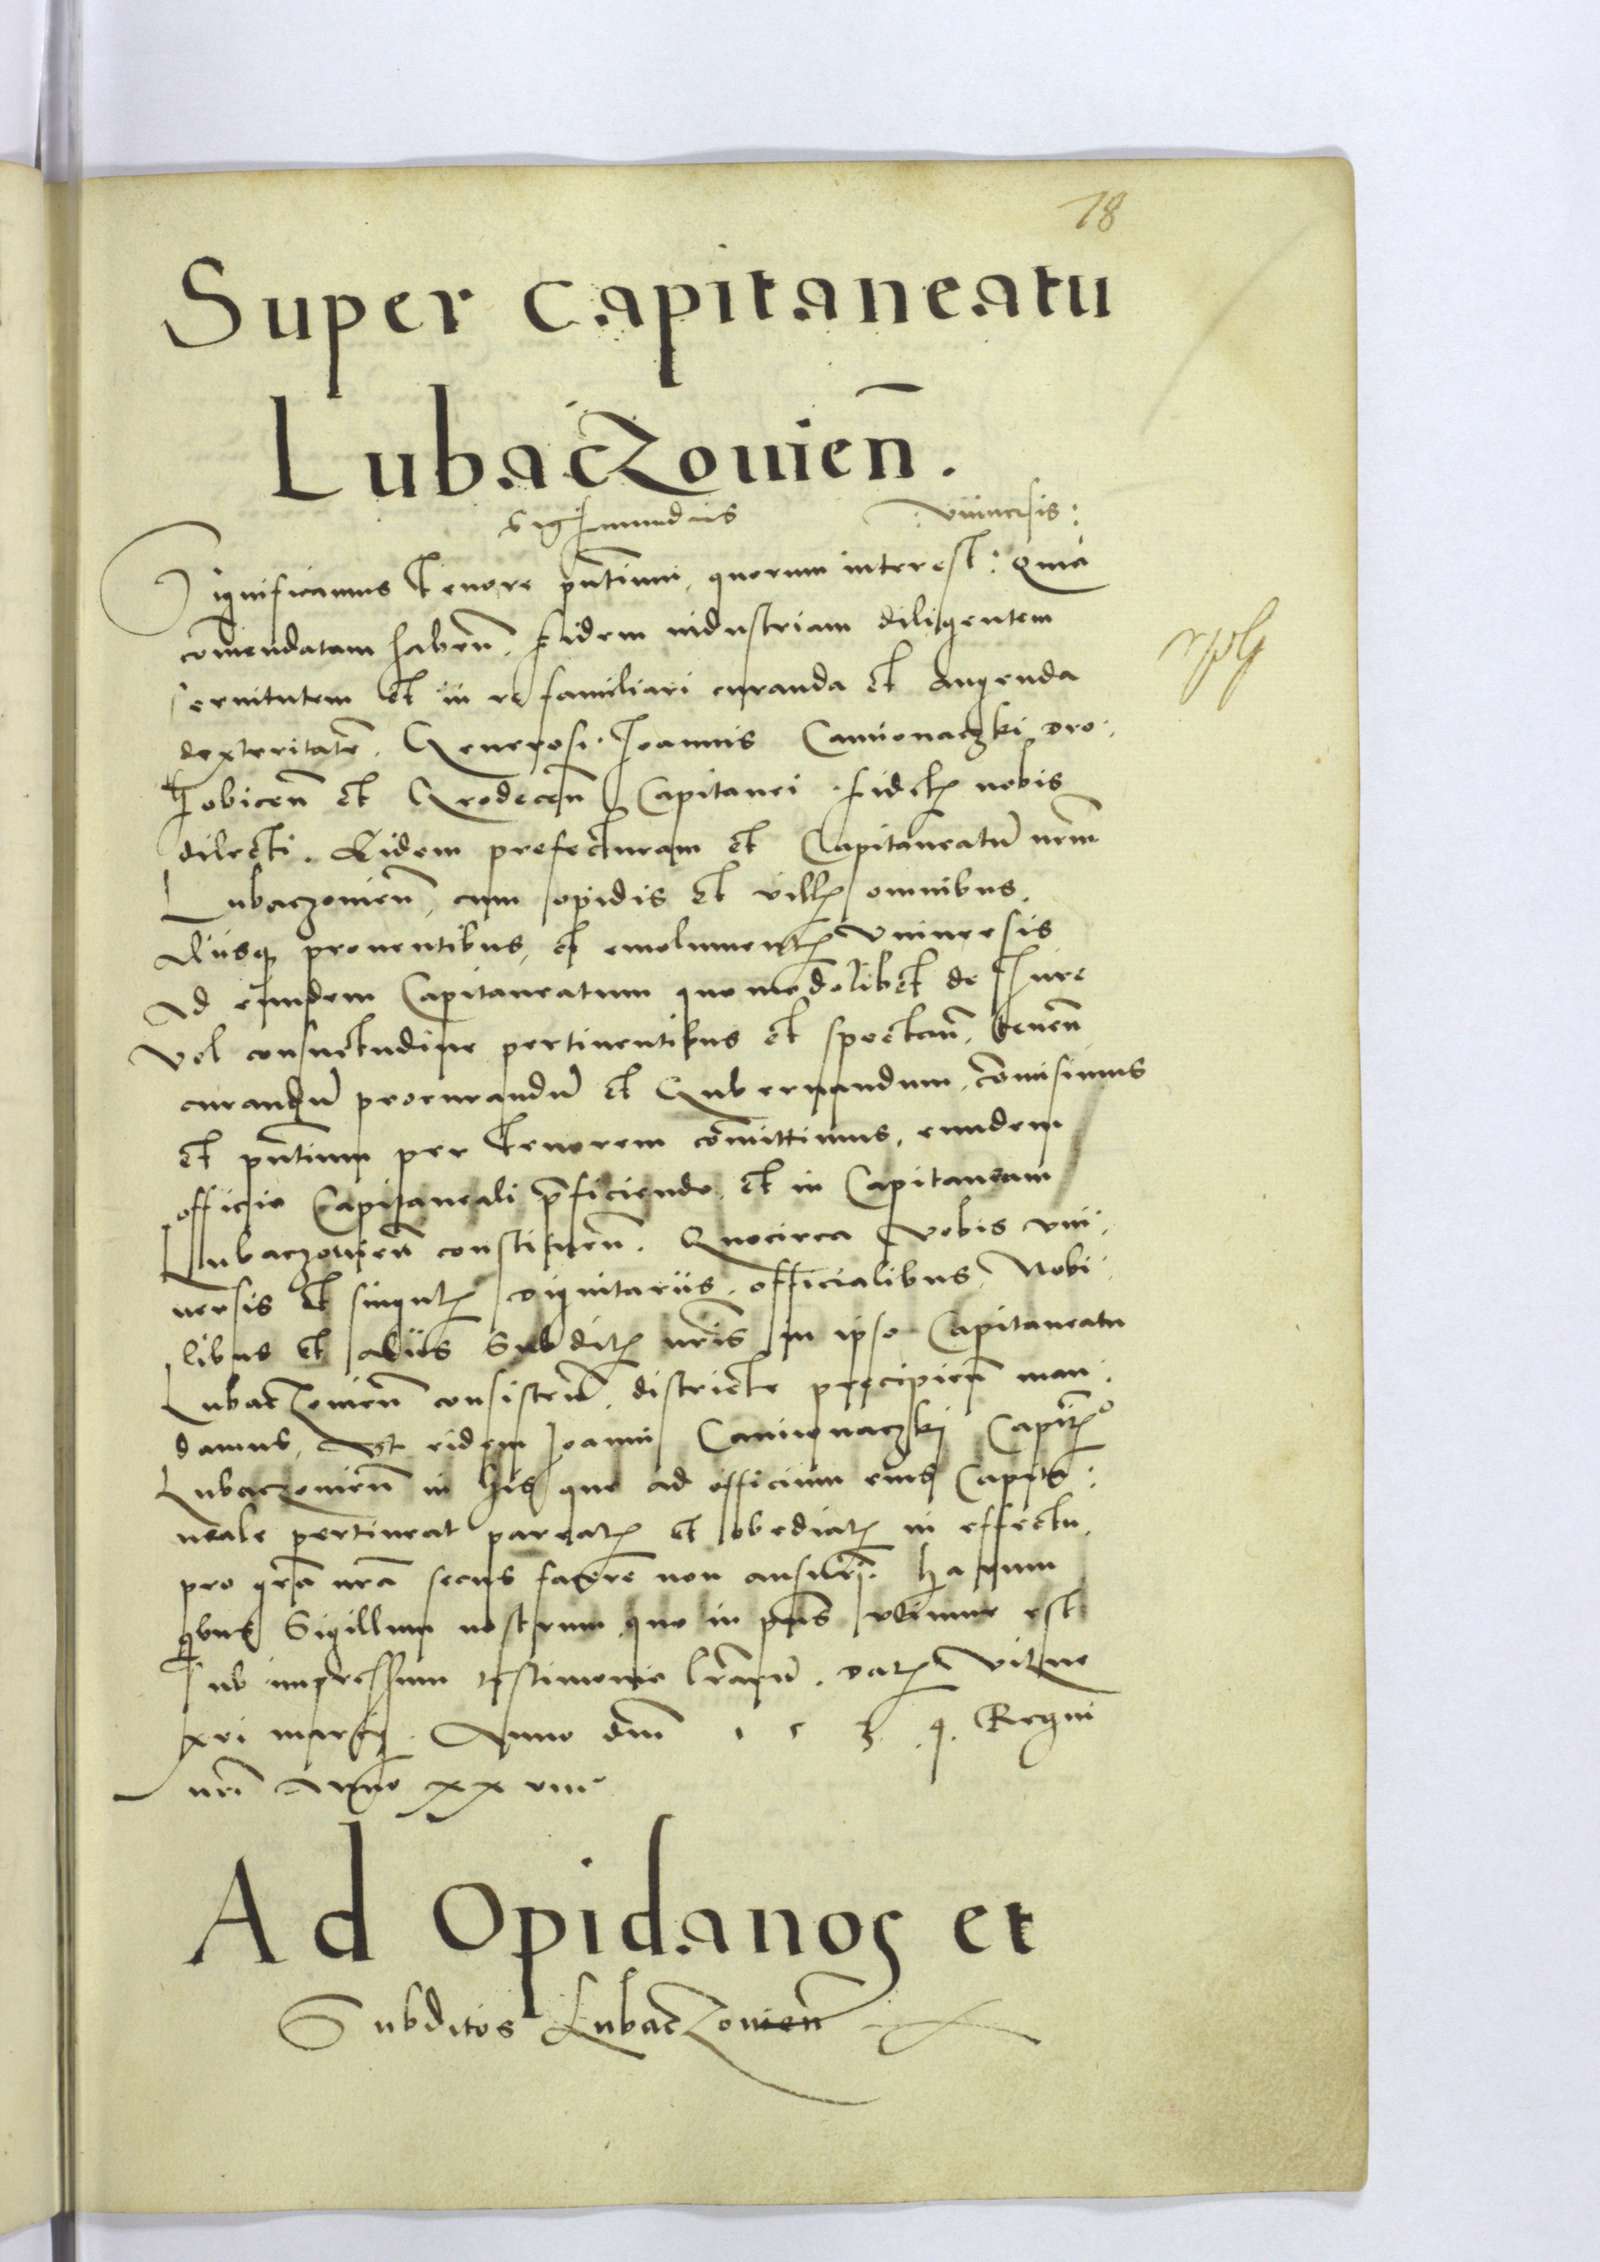 18
Super capitaneatu
Lubaczouien̄.
Sigismundus : vniuersis :
Significamus tenore pñtium, quorum interest : Quia
com̄endatam haben̄. fidem industriam diligentem
seruitutem et in re familiari curanda et augenda
dexteritatē. Generosi Joannis Camionaczki dro-
hobicen̄ et Grodecen̄ Capitanei fidel nobis
dilecti. Eidem prefecturam et Capitaneatū nrm̄
Lubaczouien̄, cum opidis et vill omnibus,
Aliisq prouentibus, et emolument vniuersis
Ad eundem Capitaneatum quomodolibet de Jure
vel consuetudine pertinentibus et spectan̄, tenen̄
curandū procurandū et Gubernandum, com̄isimus
et pñtium per tenorem com̄ittimus, eundem
officio Capitaneali p̄ficiendo, et in Capitaneum
Lubaczouien̄ constituen̄. Quocirca vobis vni-
uersis et singul dignitariis, officialibus, Nobi-
libus et aliis Subdit nrīs in ipso Capitaneatu
Lubaczouien̄ consisten̄, districte precipien̄ man-
damus, Vt eidem Joanni Camionaczki Capit°
Lubaczouien̄ in his que ad officium eius Capita-
neale pertineat pareat et obediat in effectu,
pro gr̄a nrā secus facere non ausuri. harum
qbus Sigillum nostrum quo in pn̄s vtimur est
Sub impressum testimonio lrārū. dat Vilne
xxi marcij. Anno dnī 1 5 3 4. Regni
nrī Anno xx viii°
Ad Opidanos et
Subditos Lubaczouien̄